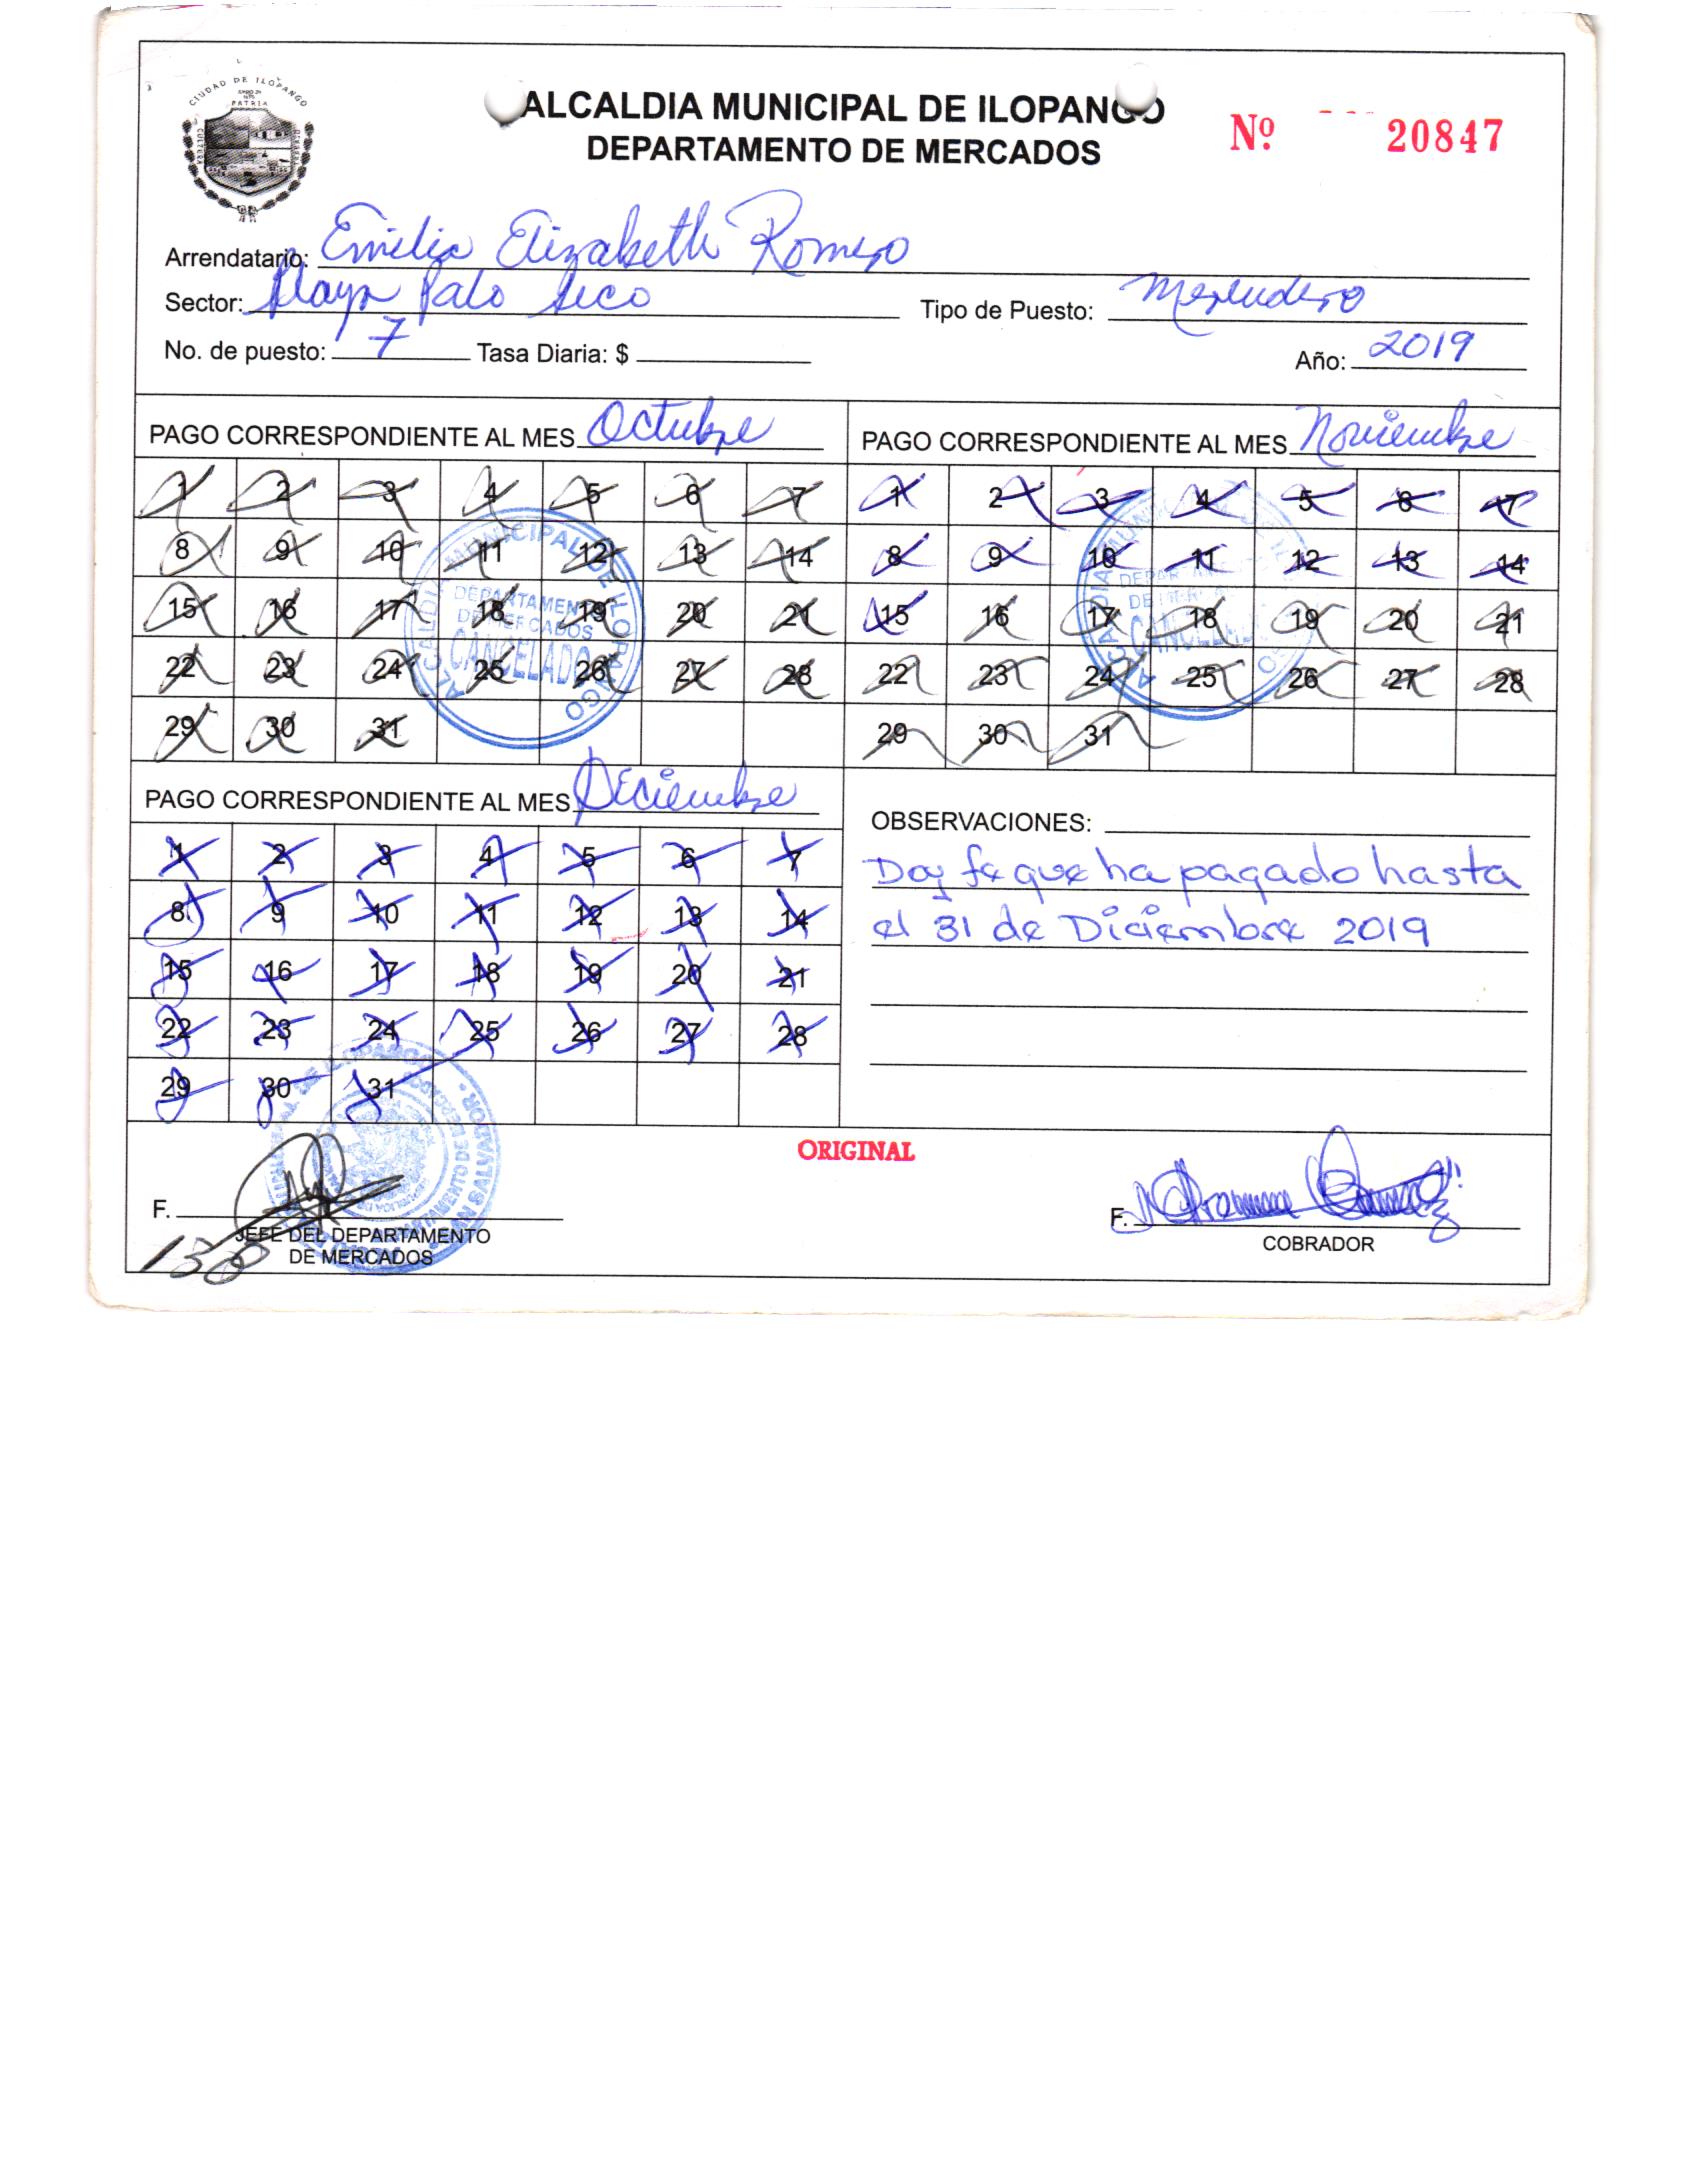 CIUDAD DE ILOPANGO
PATRIA
CULTURA
ALCALDIA MUNICIPAL DE ILOPANGO
DEPARTAMENTO DE MERCADOS
Nº 20847
Arrendatario: Emilia Elizabeth Romero
Sector: Playa Palo Seco Tipo de Puesto: Merendero
No. de puesto: 7 Tasa Diaria: $ Año: 2019
PAGO CORRESPONDIENTE AL MES Octubre
1 2 3 4 5 6 7
8 9 10 11 12 13 14
15 16 17 18 19 20 21
22 23 24 25 26 27 28
29 30 31
ALCALDIA MUNICIPAL DE ILOPANGO
DEPARTAMENTO
DE MERCADOS
CANCELADO
PAGO CORRESPONDIENTE AL MES Noviembre
1 2 3 4 5 6 7
8 9 10 11 12 13 14
15 16 17 18 19 20 21
22 23 24 25 26 27 28
29 30 31
PAGO CORRESPONDIENTE AL MES Diciembre
1 2 3 4 5 6 7
8 9 10 11 12 13 14
15 16 17 18 19 20 21
22 23 24 25 26 27 28
29 30 31
OBSERVACIONES:
Doy fe que ha pagado hasta
el 31 de Diciembre 2019
ORIGINAL
F.
JEFE DEL DEPARTAMENTO
DE MERCADOS
F.
COBRADOR